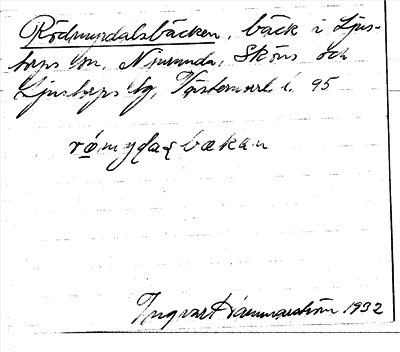 Rödmyrdalsbäcken, bäck i Ljus-
torps sn. Njurunda, Sköns och
Ljustorps tg, Västernorrl. l. 95
römydaɽbækan
Ingvar Hammarström 1932